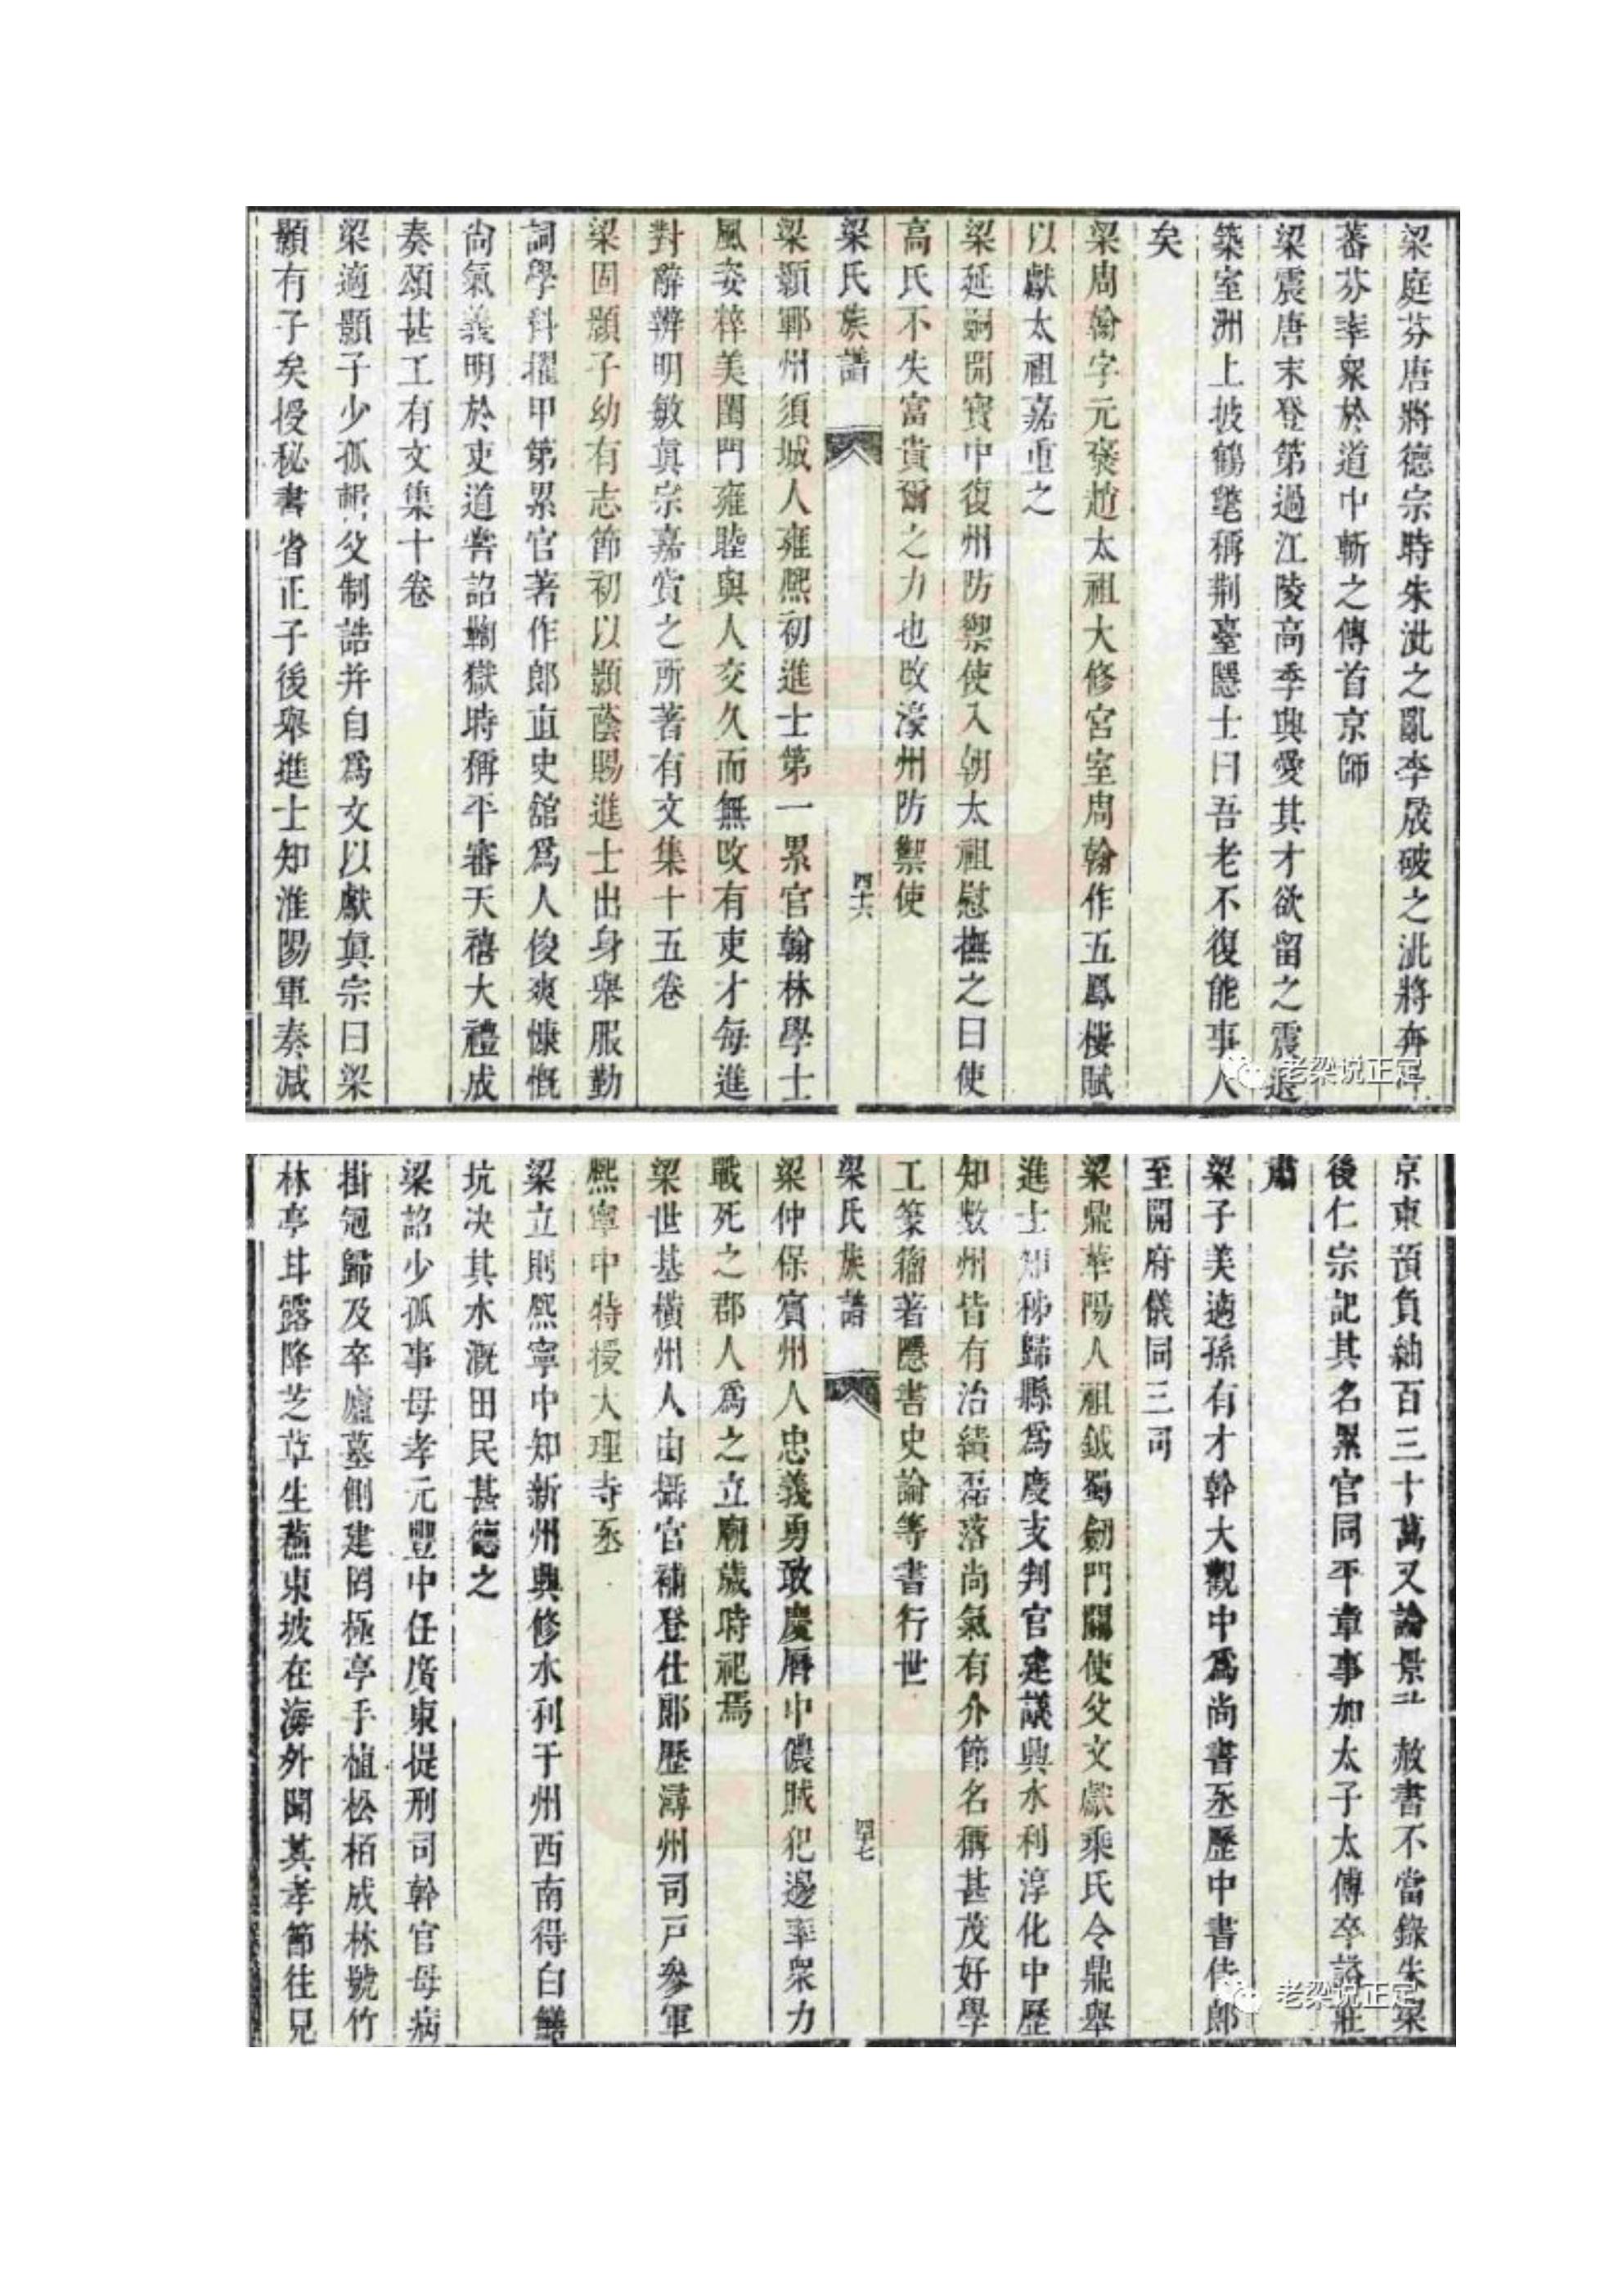 梁庭芬唐將德宗時朱泚之亂李晟破之泚將奔
蕃芬率衆於道中斬之傳首京師
梁震唐末登第過江陵高季興愛其才欲留之震退
築室洲上披鶴氅稱荆臺隱士曰吾老不復能事人
矣
梁周翰字元褒趙太祖大修宮室周翰作五鳳樓賦
以獻太祖嘉重之
梁延嗣開寶中復州防禦使入朝太祖慰撫之曰使
高氏不失富貴爾之力也改濠州防禦使
梁氏族譜
四十六
梁顥鄆州須城人雍熙初進士第一累官翰林學士
風姿粹美閨門雍睦與人交久而無改有吏才每進
對辭辨明敏真宗嘉賞之所著有文集十五卷
梁固顥子幼有志節初以顥蔭賜進士出身舉服勤
詞學科擢甲第累官著作郎直史舘爲人俊爽慷慨
尚氣義明於吏道詔鞫獄時稱平審天禧大禮成
奏頌甚工有文集十卷
梁適顥子少孤輯父制誥并自爲文以獻真宗曰梁
顥有子矣授秘書省正子後舉進士知淮陽軍奏減
京東預負紬百三十萬又論景 赦書不當錄朱梁
後仁宗記其名累官同平章事加太子太傅卒諡莊
肅
梁子美適孫有才幹大觀中爲尚書丞歷中書侍郎
至開府儀同三司
梁鼎華陽人祖鉞蜀劒門關使父文獻乘氏令鼎舉
進士知秭歸縣爲度支判官建議興水利淳化中歷
知數州皆有治績磊落尚氣有介節名稱甚茂好學
工篆籀著隱書史論等書行世
梁氏族譜
四十七
梁仲保賓州人忠義勇敢慶曆中儂賊犯邊率衆力
戰死之郡人爲之立廟歲時祀焉
梁世基橫州人由攝官補登仕郎歷潯州司戸參軍
熙寧中特授大理寺丞
梁立則熙寧中知新州興修水利于州西南得白鱔
坑决其水溉田民甚德之
梁詔少孤事母孝元豐中任廣東提刑司幹官母病
掛冠歸及卒廬墓側建罔極亭手植松栢成林號竹
林亭甘露降芝草生蘸東坡在海外聞其孝節往見
老梁说正定
老梁说正定